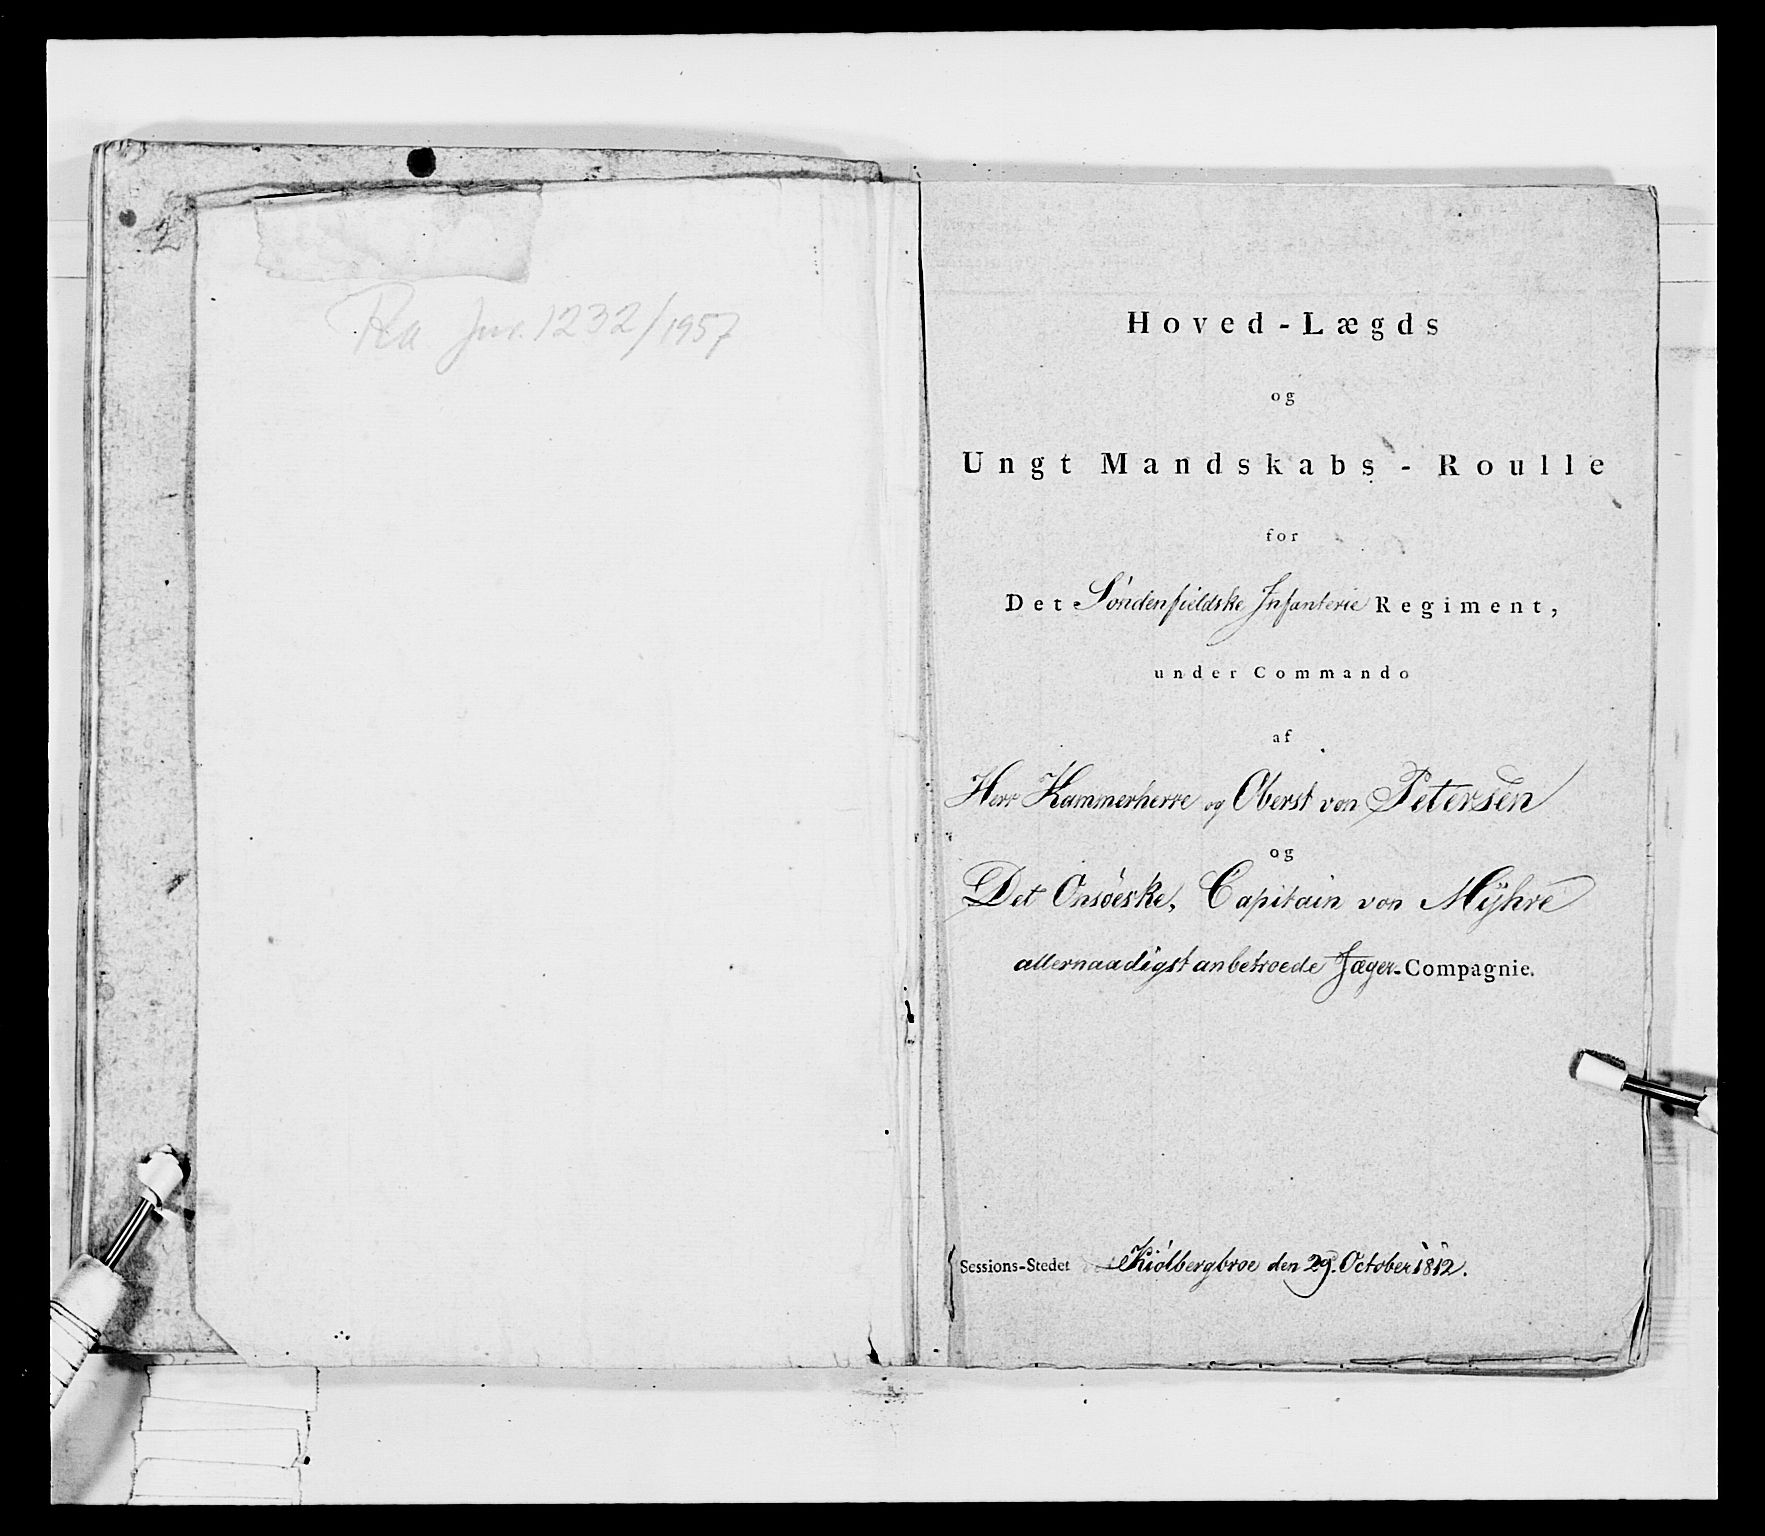 Ra Jnr. 1232/1957
Hoved-Lægds
og
Ungt Mandskabs-Roulle
for
Det Söndenfieldske Infanterie Regiment,
under Commando
af
Herr Kammerherre og Oberst von Petersen
og
Det Onsöeske, Capitain von Mÿhre
allernaadigst anbetroede Jæger-Compagnie.
Sessions-Stedet Kiölbergbroe den 29. October 1812.